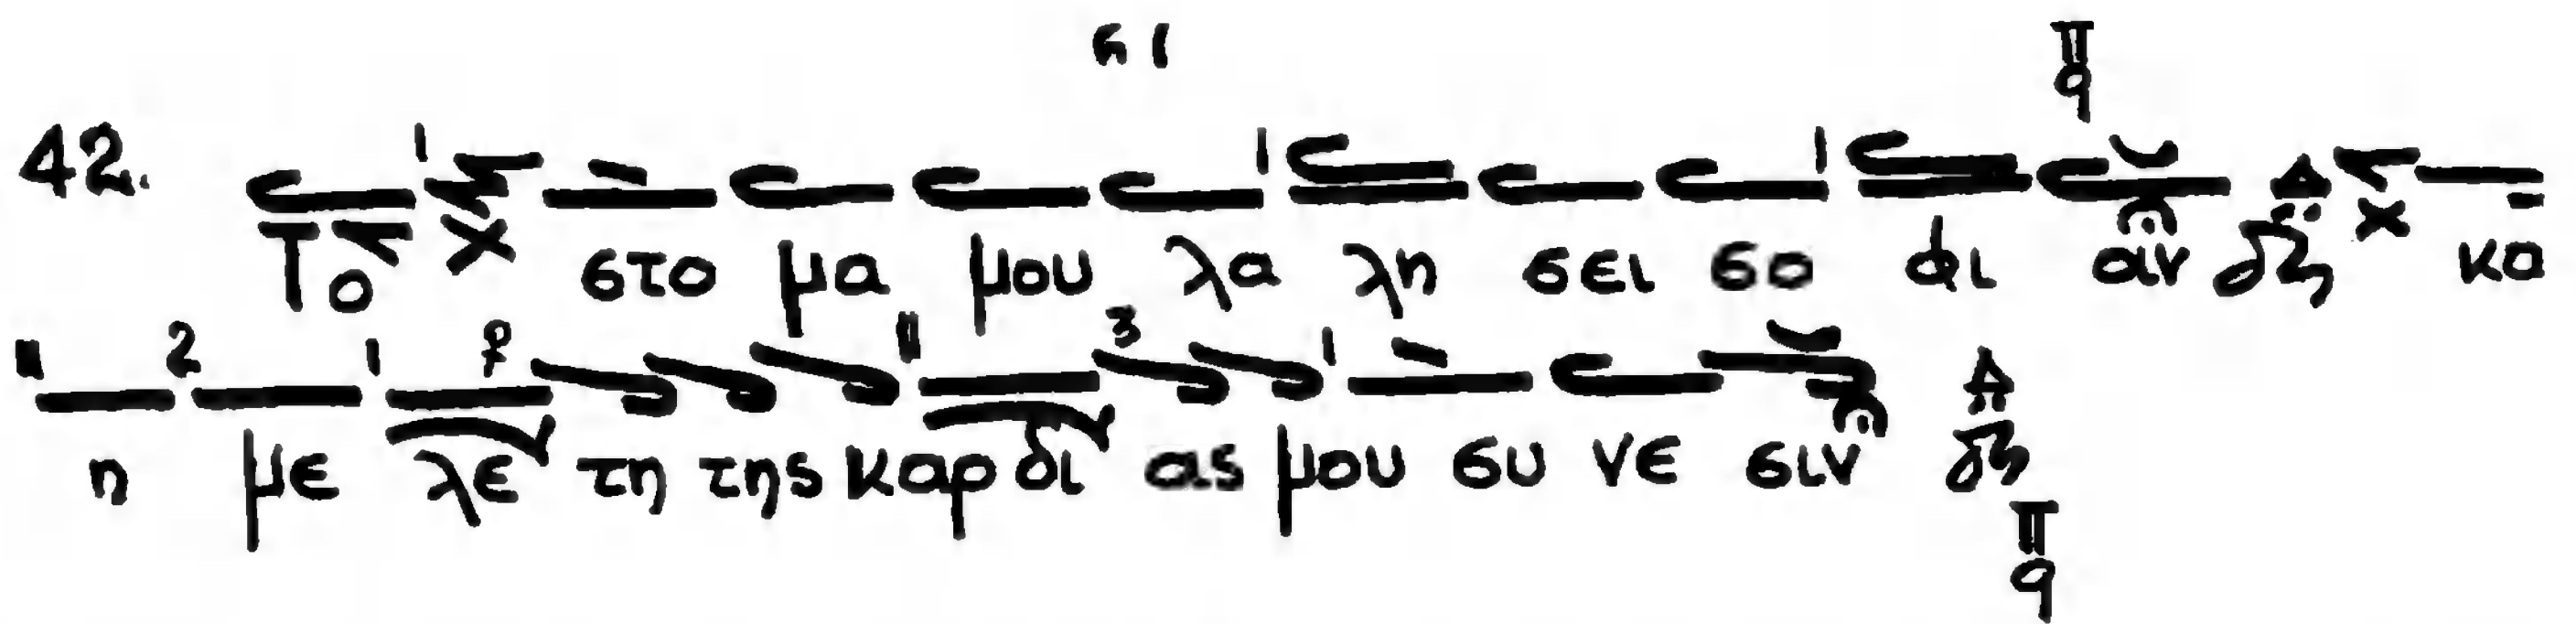 42. Το στο μα μου λα λη σει σο φι αν κα
η με λε τη της καρ δι ας μου συ νε σιν